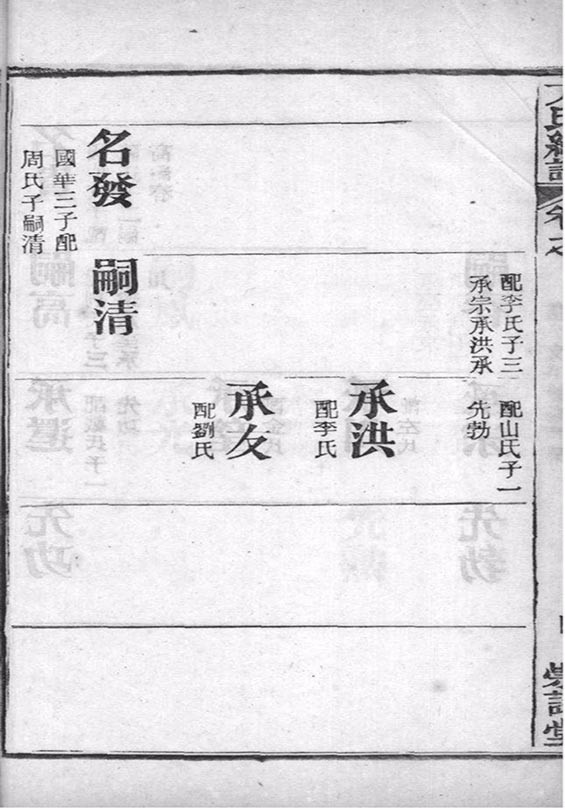 卷之
名發
國華三子配
周氏子嗣清
配李氏子三
承宗承洪承
嗣清
配山氏子一
先勃
承洪
配李氏
承友
配劉氏
堂